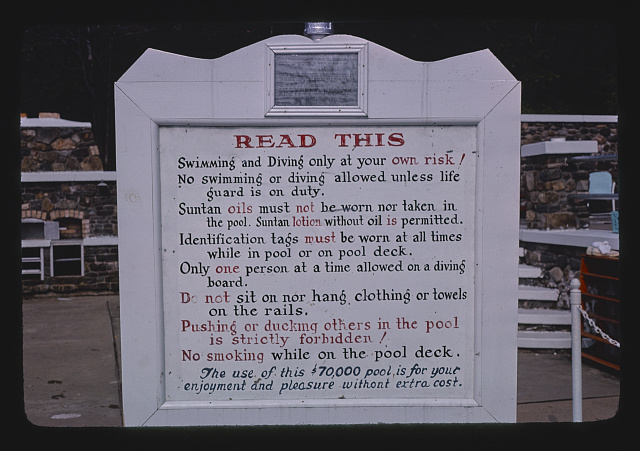 READ THIS
Swimming and Diving only at your own risk!
No swimming or diving allowed unless life
guard is on duty.
Suntan oils must not be worn nor taken in
the pool. Suntan lotion without oil is permitted.
Identification tags must be worn at all times
while in pool or on pool deck.
Only one person at a time allowed on a diving
board.
Do not sit on nor hang clothing or towels
on the rails.
Pushing or ducking others in the pool
is strictly forbidden!
No smoking while on the pool deck.
The use of this $70,000 pool is for your
enjoyment and pleasure without extra cost.